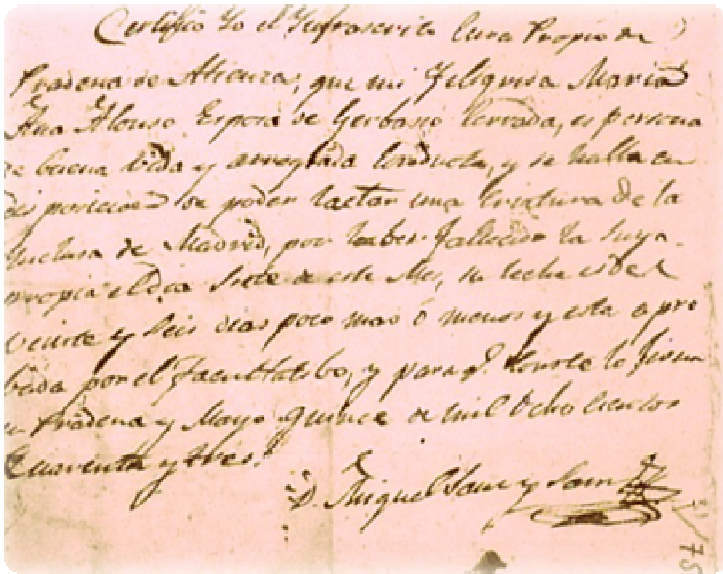 Certifico Yo el Infrascrito Cura Propio de
Pradena de Atienza, que mi Feligresa Maria
Ana Alonso Esposa de Gerbasio Cerrada, es persona
de buena vida y arreglada Conducta, y se halla en
disposicion de poder lactar una Criatura de la
Inclusa de Madrid, por haber fallecido la suya
propia el Dia Siete de este Mes, su leche es de
veinte y seis dias poco mas ó menos y esta apro
bada por el Facultatibo, y para q.e conste lo firmo
en Pradena y Mayo quince de mil ocho cientos
Cuarenta y tres.
D. Miguel Sanz y Sanz